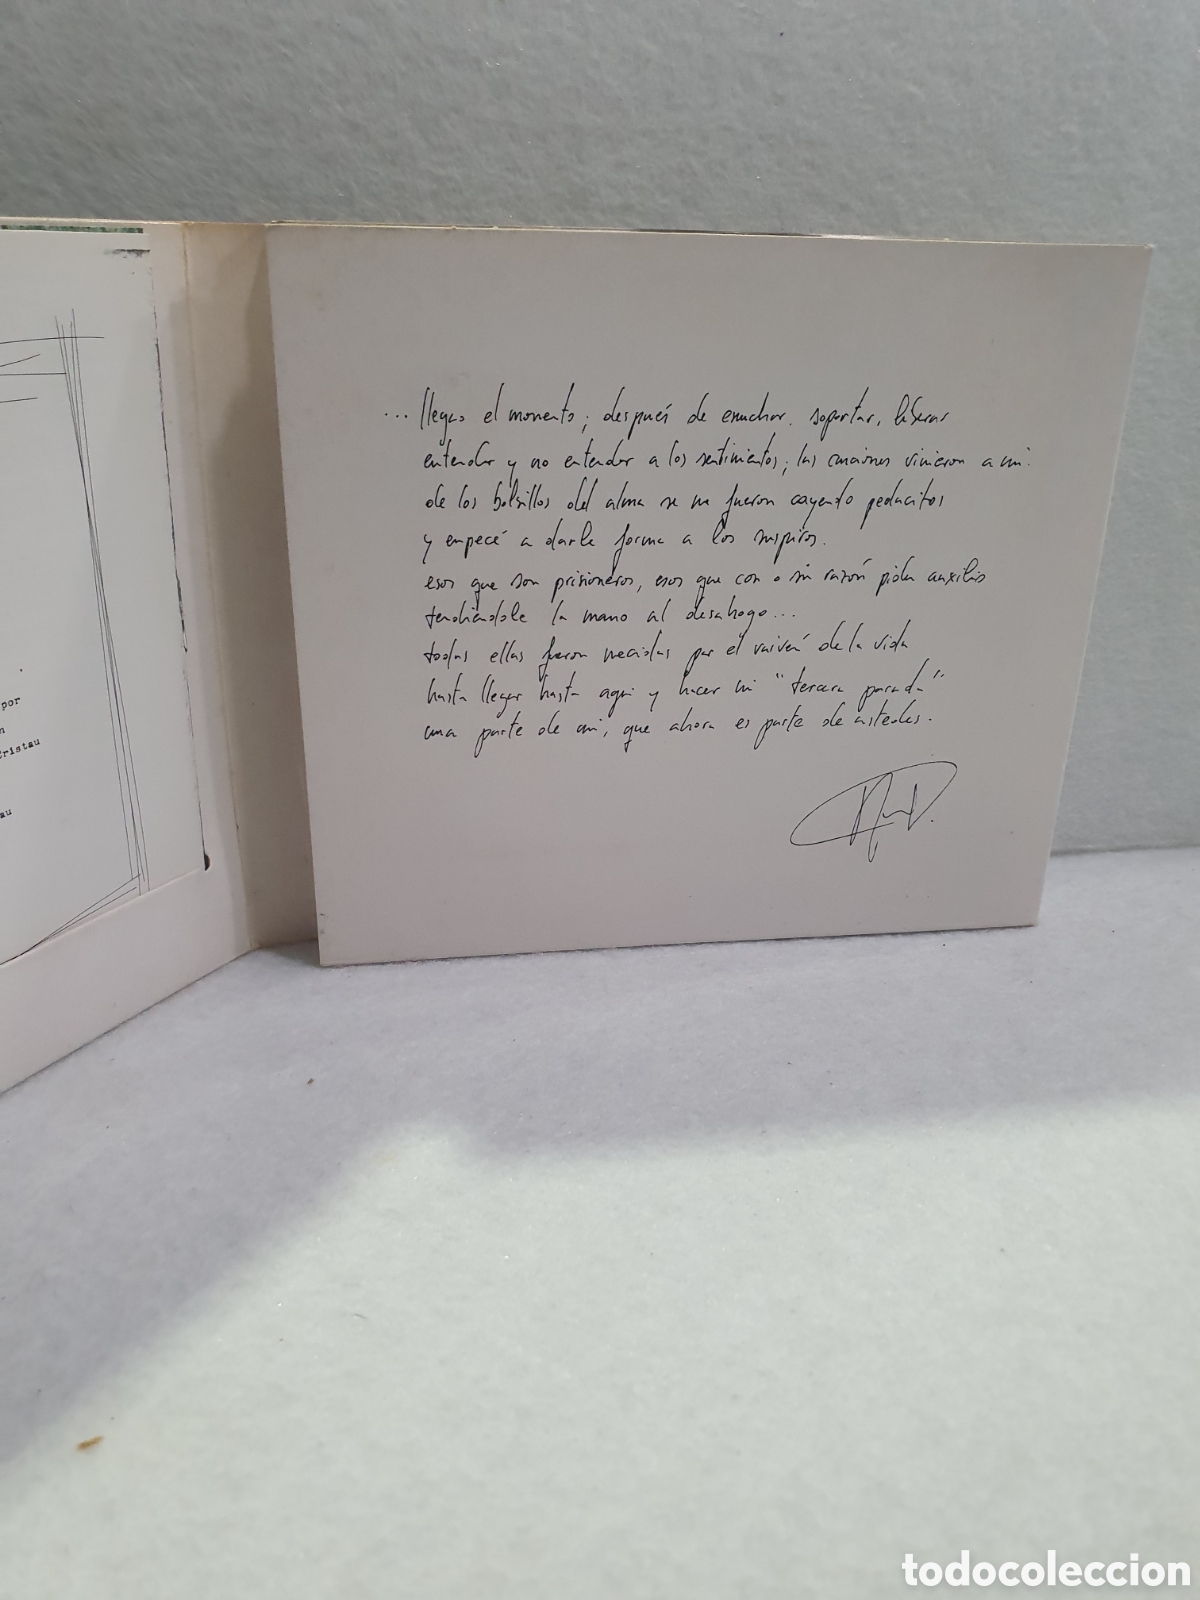 ... llegas el momento; después de escuchar, soportar, liberar
entender y no entender a los sentimientos; las canciones vinieron a mi.
de los bolsillos del alma se me fueron cayendo pedacitos
y empecé a darle forma a los suspiros.
esos que son prisioneros, esos que con o sin razón piden auxilio
tendiéndole la mano al desahogo...
todas ellas fueron mecidas por el vaivén de la vida
hasta llegar hasta aqui y hacer mi "tercera parada"
una parte de mi, que ahora es parte de ustedes.
por
n
Cristau
au
todocoleccion